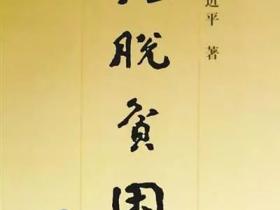 脱贫困
近平 著